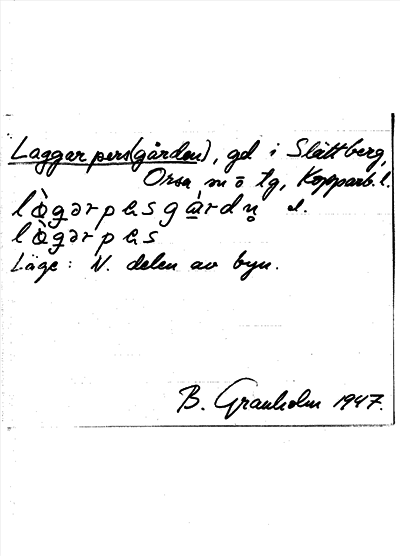 Laggarpers(gården), gd i Slättberg,
Orsa sn o tg, Kopparb. l.
lògərpɛsgàrdn̥ l.
lògərpɛs
Läge: N. delen av byn.
B. Granholm 1947.